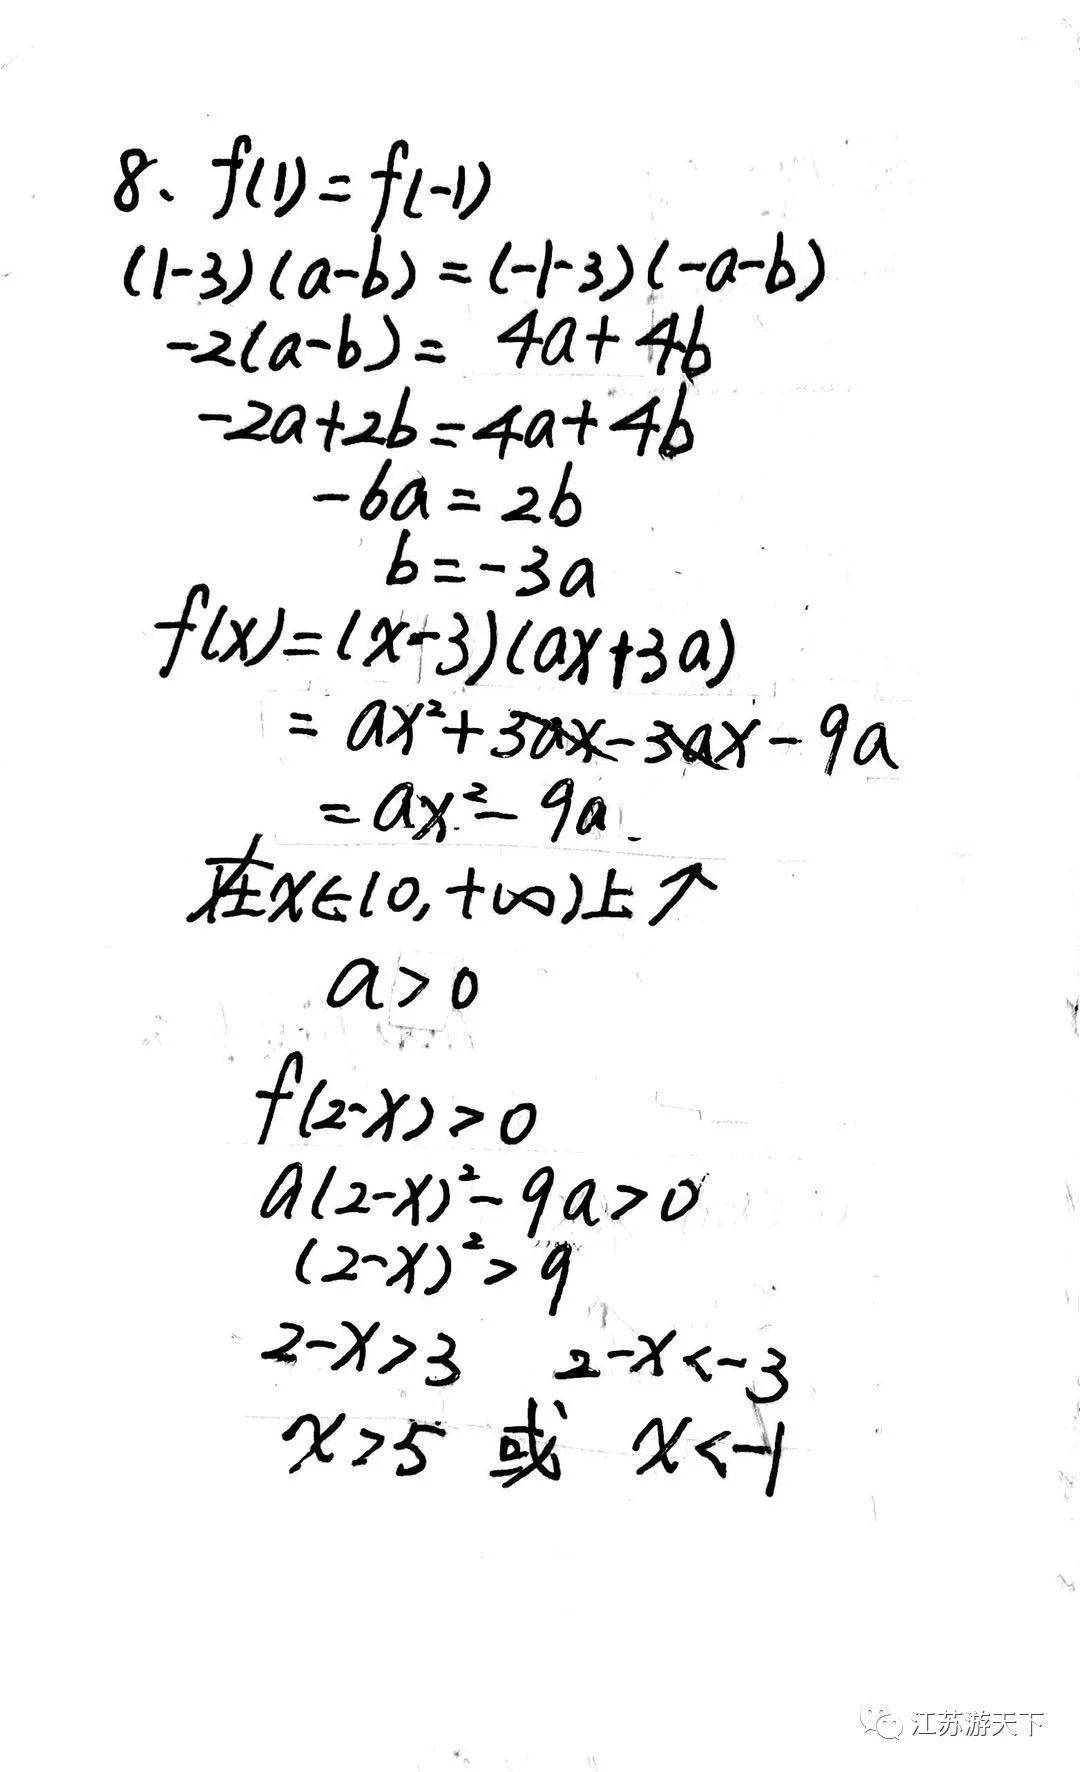 8、f(1)=f(-1)
(1-3)(a-b)=(-1-3)(-a-b)
-2(a-b)= 4a+4b
-2a+2b=4a+4b
-6a=2b
b=-3a
f(x)=(x-3)(ax+3a)
=ax²+3ax-3ax-9a
=ax²-9a.
在x∈(0,+∞)上↗
a>0
f(2-x)>0
a(2-x)²-9a>0
(2-x)²>9
2-x>3 2-x<-3
x>5 或 x<-1
江苏游天下